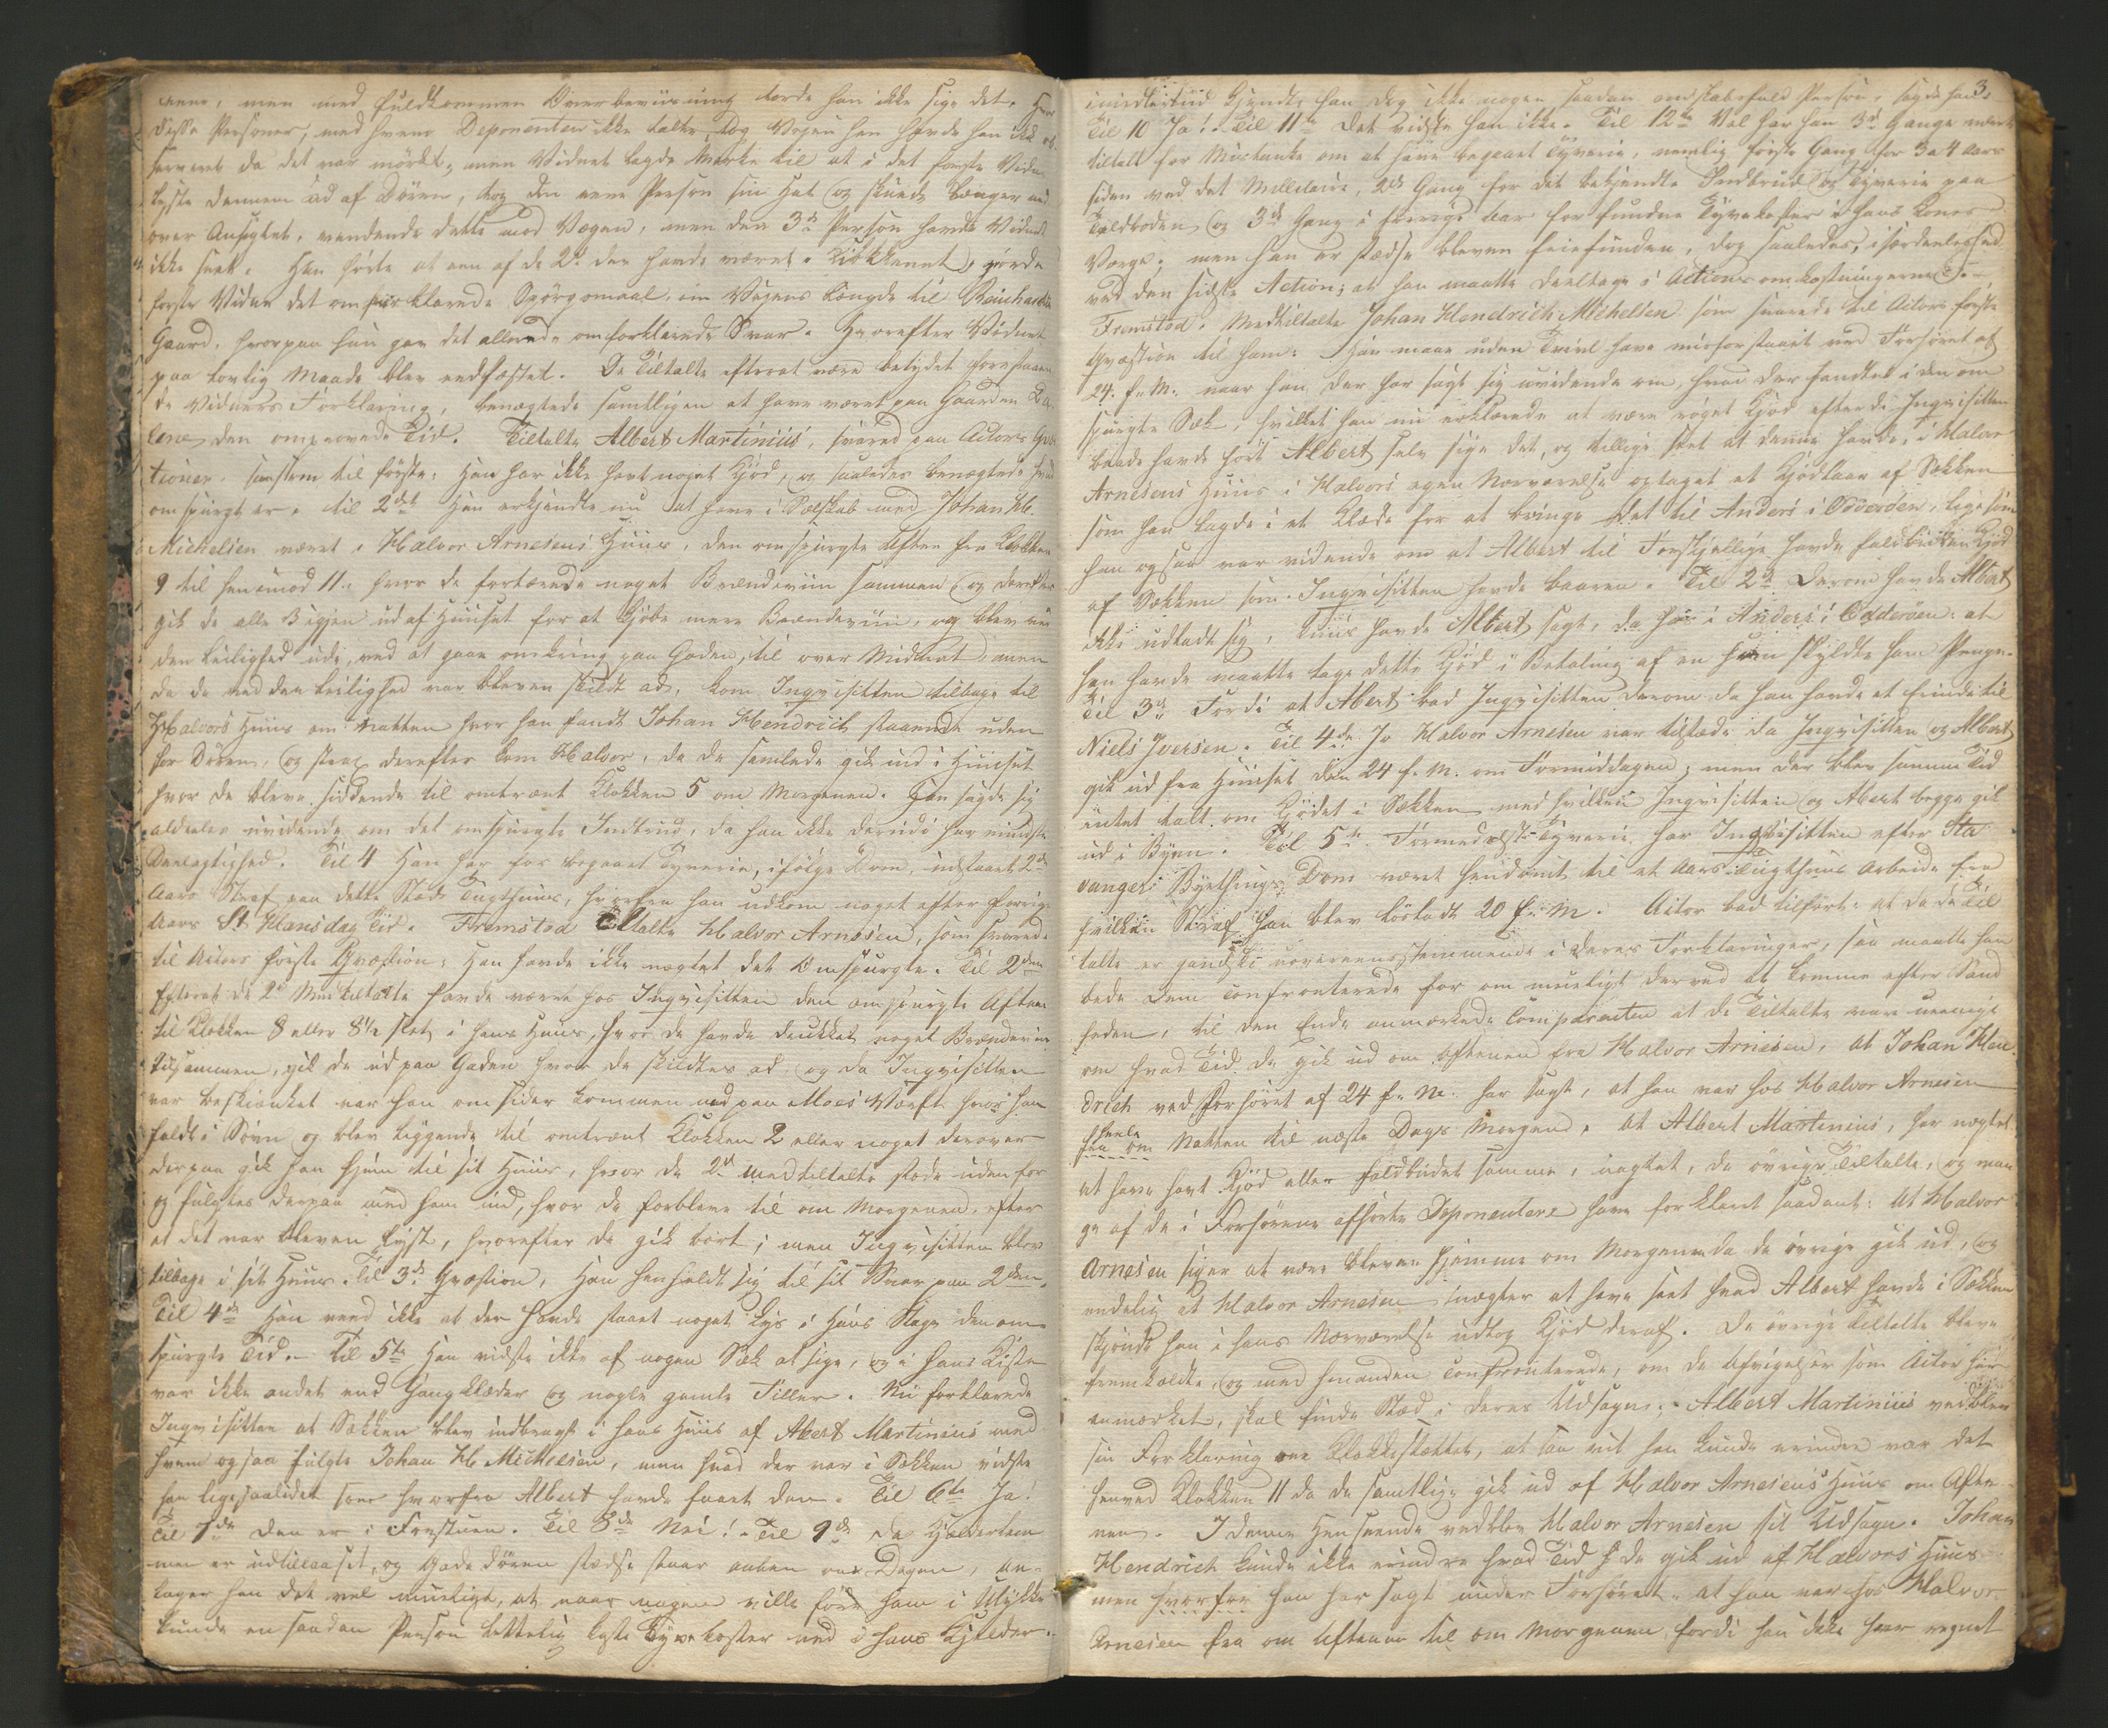 enne, men med fuldkommen Overbeviisning torde han ikke sige det. Hvor
disse Personer, med hvem Deponenten ikke talte, tog Vejen hen havde han ikke ob-
serveret da det var mörkt; men Vidnet lagde Mærke til at i det første Vidne
lyste dennem ud af Dören, tog den eene Person sin Hat og skuede længer ned
over Ansigtet, vendende dette mod Væggen, men den 3de Person havde Vidnet
ikke seet. Han hørte at een af de 2de der havde været i Kiökkenet, giorde
første Vidne det omforklarede Spörgsmaal, om Vejens Længde til Reinhardts
Gaard, hvorpaa hun gav det allerede omforklarede Svar. Hvorefter Vidnet
paa lovlig Maade blev eedfæstet. De Tiltalte efterat være betydet foranstaaen
de Vidners Forklaring, benægtede samtligen at have været paa Gaarden
den omprovede Tid. Tiltalte Albert Martinius, svared paa Actors Qvæs
tioner, saasom til første: Han har ikke havt noget Kjød, og saaledes benægtede hvad
omspurgt er. til 2det Han erkjendte nu at have i Selskab med Johan H.
Michelsen været i Halvor Arnesens Huus, den omspurgte Aften fra Klokken
9 til henimod 11; hvor de fortærede noget Brændeviin sammen og derefter
gik de alle 3 igjen ud af Huuset for at kjøbe mere Brændeviin, og blev ved
den Leilighed ude, ved at gaae omkring paa Gaden, til over Midnat; men
da de ved den Leilighed var bleven skildt ad, kom Inqvisitten tilbage til
Halvors Huus om Natten hvor han fandt Johan Hendrich staaende uden
for Dören, og strax derefter kom Halvor, da de samlede gik ind i Huuset
hvor de bleve siddende til omtrent Klokken 5 om Morgenen. Han sagde sig
aldeeles uvidende om det omspurgte Indbrud, da han ikke derudi har mindste
Deelagtighed. Til 4 Han har for begaaet Tyverie, ifölge Dom, udstaaet 2de
Aars Straf paa dette Stæds Tugthuus, hvorfra han udkom noget efter forrige
Aars St Hansdag Tid. Fremstod Tiltalte Halvor Arnesen, som svarede
til Actors første Qvæstion; Han havde ikke nægtet det Omspurgte. Til 2den
Efterat de 2de Medtiltalte havde været hos Inqvisitten den omspurgte Aften
til Klokken 8 eller 8½ slet i hans Huus, hvor de havde drukket noget Brændeviin
tilsammen, gik de ud paa Gaden hvor de skildtes ad, og da Inqvisitten
var beskiænket var han omsider kommen ned paa Moes Værft hvor han
faldt i Sövn og blev liggende til omtrent Klokken 2 eller noget derover
derpaa gik han hjem til sit Huus, hvor de 2de medtiltalte stode uden for
og fulgtes derpaa med ham ind, hvor de forbleve til om Morgenen, efter
at det var bleven lyst, hvorefter de gik bort; men Inqvisitten blev
tilbage i sit Huus. Til 3de Qvæstion, Han henholdt sig til sit Svar paa 2den.
Til 4de Han veed ikke at der havde staaet noget Lys i Huus Stage den om-
spurgte Tid. Til 5te Han vidste ikke af nogen Sæk at sige, og i hans Kiste
var ikke andet end Gangklæder og nogle gamle Filler. Nu forklarede
Inqvisitten at Sækken blev indbragt i hans Huus af Abert Martinius med
hvem ogsaa fulgte Johan H Michelsen, men hvad der var i Sækken vidste
han ligesaalidet som hvorfra Albert havde faaet den. Til 6te Ja!
Til 7de Den er i Forstuen. Til 8de Nei! Til 9de Da Kjælderlem
men er udtillaaset, og Gade Dören stædse staar aaben om Dagen, an-
tager han det vel mueligt, at naar nogen ville före ham i Ulykke
kunde en saadan Person lettelig kaste Tyvekoster ned i hans Kjelder.
3.
imidlertiid kjendte han dog ikke nogen saadan ondskabsfuld Person, sagde han.
Til 10 Ja! Til 11te Det vidste han ikke. Til 12te Vel har han 3de Gange været
tiltalt for Mistanke om at have begaaet Tyverie, nemlig første Gang for 3 a 4 Aar
siden ved det Militaire, 2de Gang for det bekjendte Indbrud og Tyverie paa
Toldboden og 3de Gang i forrige Aar for fundne Tyvekoster i hans Kones
Værge, men han er stædse bleven friefunden, dog saaledes, i særdeleshed
ved den sidste Action; at han maatte deeltage i Actions omkostningerne.
Fremstod Medtiltalte Johan Hendrich Michelsen som svarede til Actors første
Qvæstion til ham: Han maae uden Tvivl have misforstaaet ved Forhöret af
24. f. M. naar han der har sagt sig uvidende om, hvad der fandtes i den om
spurgte Sæk, hvilket han nu erklærede at være röget Kjød efterdi Inqvisitten
baade havde hört Albert selv sige det, og tillige seet at denne havde, i Halvor
Arnesens Huus i Halvors egen Nærværelse optaget et Kjødlaar af Sækken
som han lagde i et Klæde for at bringe det til Anders i Odderöen, ligesom
han ogsaa var vidende om at Albert til Forskjellige havde faldbudet Kjød
af Sækken som Inqvisitten havde baaren. Til 2de Derom havde Albert
ikke udladt sig, kuns havde Albert sagt, da han i Anders i Odderöen: at
han havde maatte tage dette Kjød i Betaling af en som skyldte ham Penge.
Til 3de Fordi at Abert bad Inqvisitten derom da han havde et Erinde til
Niels Iversen. Til 4de Jo Halvor Arnesen var tilstæde da Inqvisitten og Albert
gik ud fra Huuset den 24 f. M. om Formiddagen; men der blev samme Tid
intet talt om Kjødet i Sækken med hvilken Inqvisitten og Abert begge gik
ud i Byen. Til 5te Formedelst Tyverie har Inqvisitten efter Sta
vangers Byethings Dom været hendömt til et Aars Tugthuus Arbeide fra
hvilken Straf han blev löslodt 20 f. M. Actor bad tilført: at da de Til
talte er gandske uovereensstemmende i deres Forklaringer, saa maatte han
bede dem confronterede for om mueligt derved at komme efter Sand
heden, til den Ende anmærkede Comparenten at de Tiltalte vare ueenige
om hvad Tid de gik ud om Aftenen fra Halvor Arnesen, at Johan Hen
drich ved Forhöret af 24 f. M. har sagt, at han var hos Halvor Arnesen
heele
fra om Natten til næste Dags Morgen. At Albert Martinius, har nægtet
at have havt Kjød eller faldbudet samme, uagtet, de övrige Tiltalte, og man
ge af de i Forhörene afhörte Deponentere have forklaret saadant: At Halvor
Arnesen siger at være bleven hjemme om Morgenen da de övrige gik ud, og
endelig at Halvor Arnesen nægter at have seet hvad Albert havde i Sækken
skjöndt han i hans Nærværelse udtog Kjød deraf. De övrige Tiltalte bleve
fremkaldte, og med hinanden confronterede, om de Afvigelser som Actor har
anmærket, skal finde Stæd i deres Udsagn; Albert Martinius vedblev
sin Forklaring om Klokkeslættet, at saa vit han kunde erindre var det
henved Klokken 11 da de samtlige gik ud af Halvor Arnesens Huus om Afte-
nen. I denne Henseende vedblev Halvor Arnesen sit Udsagn. Johan
Hendrich kunde ikke erindre hvad Tid de gik ud af Halvors Huus
men hvorfor han har sagt under Forhöret at han var hos Halvor
Arnesen fra om Aftenen til om Morgenen fordi han ikke har regnet